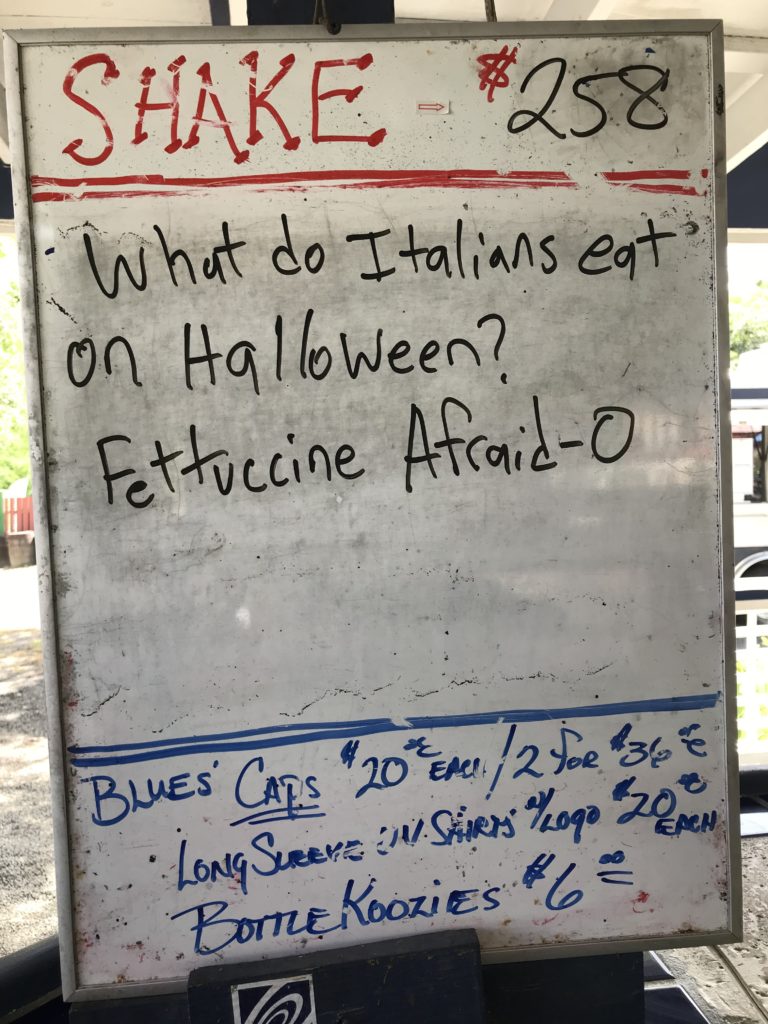 SHAKE - $258
What do Italians eat
on Halloween?
Fettuccine Afraid-O
BLUES' CAPS $20 EACH / 2 FOR $36
LONG SLEEVE UV SHIRTS W/LOGO $20 EACH
BOTTLE KOOZIES $6.00